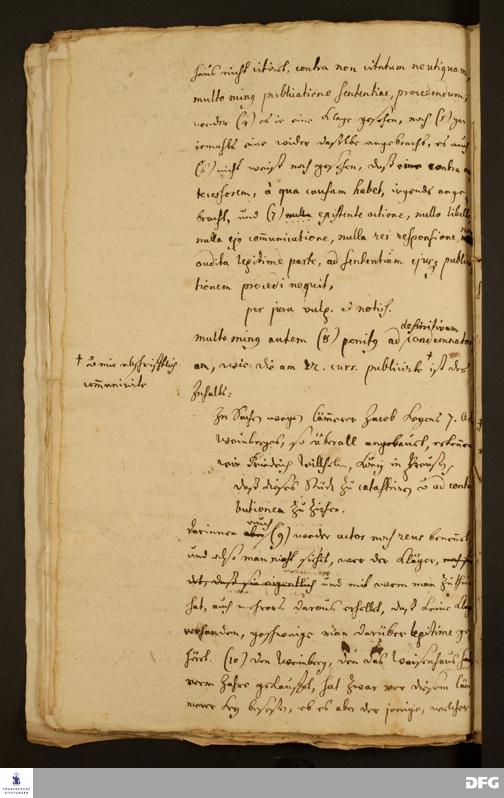 haus nicht citirt, contra non citatum neutiquam,
multo minus publicatione sententiae, procedendum;
weder (4) es je eine Klage gesehen, noch (5) gar
jemahls eine wider daßelbe angebracht, es auch
(6) nicht weiß noch gesehen, daß contra
tecessorem, à qua causam habet, irgends ange
bracht, und (7) nulla existente actione, nullo libello
nulla ejus communicatione, nulla rei responsione,
audita legitime parte, ad sententiam ejusq publica
tionem procedi nequit,
per jura vulg. et notiss.
multo minus autem (8) penitus ad definitivam condemnator
am, wie die am curr. publicirte † ist des
† mir abschrifftlich
communicirte
Inhalts:
In Sachen wegen Cämmerer Jacob 7.
Weinberges, so überall angebauet, erkennen
wir Friedrich Willhelm, König in Preußen,
daß dieses Stück zu catastriren ad contri
butionen zu ziehen.
darinnen auch (9) weder actor noch reus benennt,
und also man nicht siehet, wer der Kläger,
und mit wem man zu thun
hat, auch nehrers daraus erhellet, daß keine Klage
vorhanden, geschweige man darüber legitime ge
höret. (10) den Weinberg, den das Waisenhaus
Jahre gekauffet, hat zwar vor diesem Cäm
merer beseßen, ob es aber der jenige, welcher
FRANCKESCHE
STIFTUNGEN
DFG